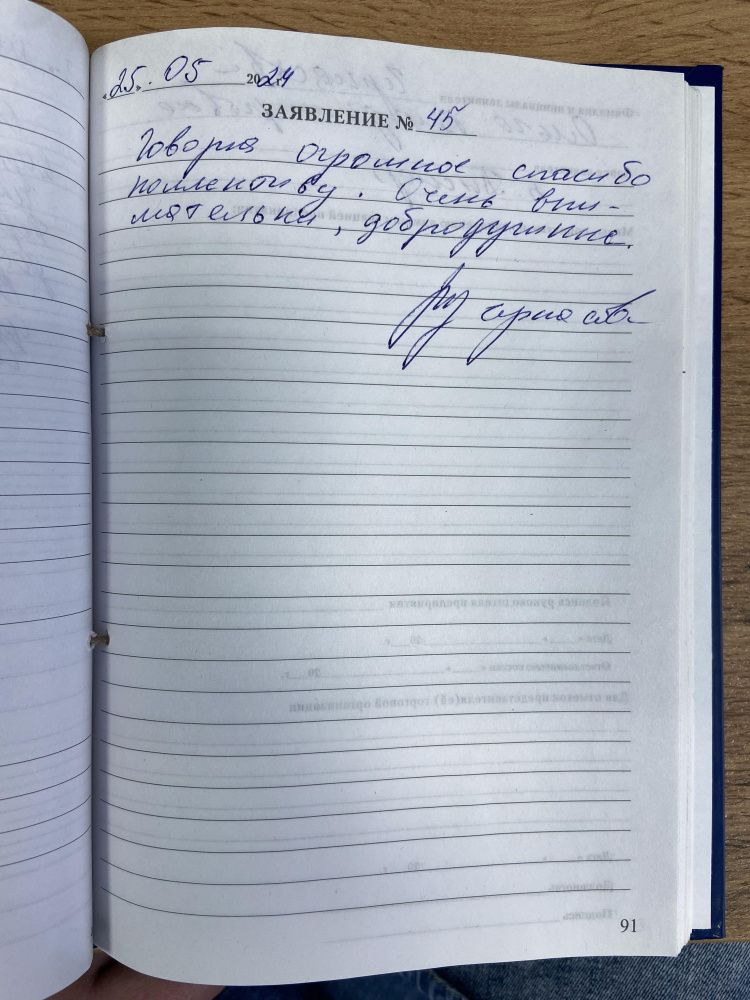 «25». 05 2024 г.
ЗАЯВЛЕНИЕ № 45
Говорю огромное спасибо
коллективу. Очень вни-
мательны, добродушные.
91